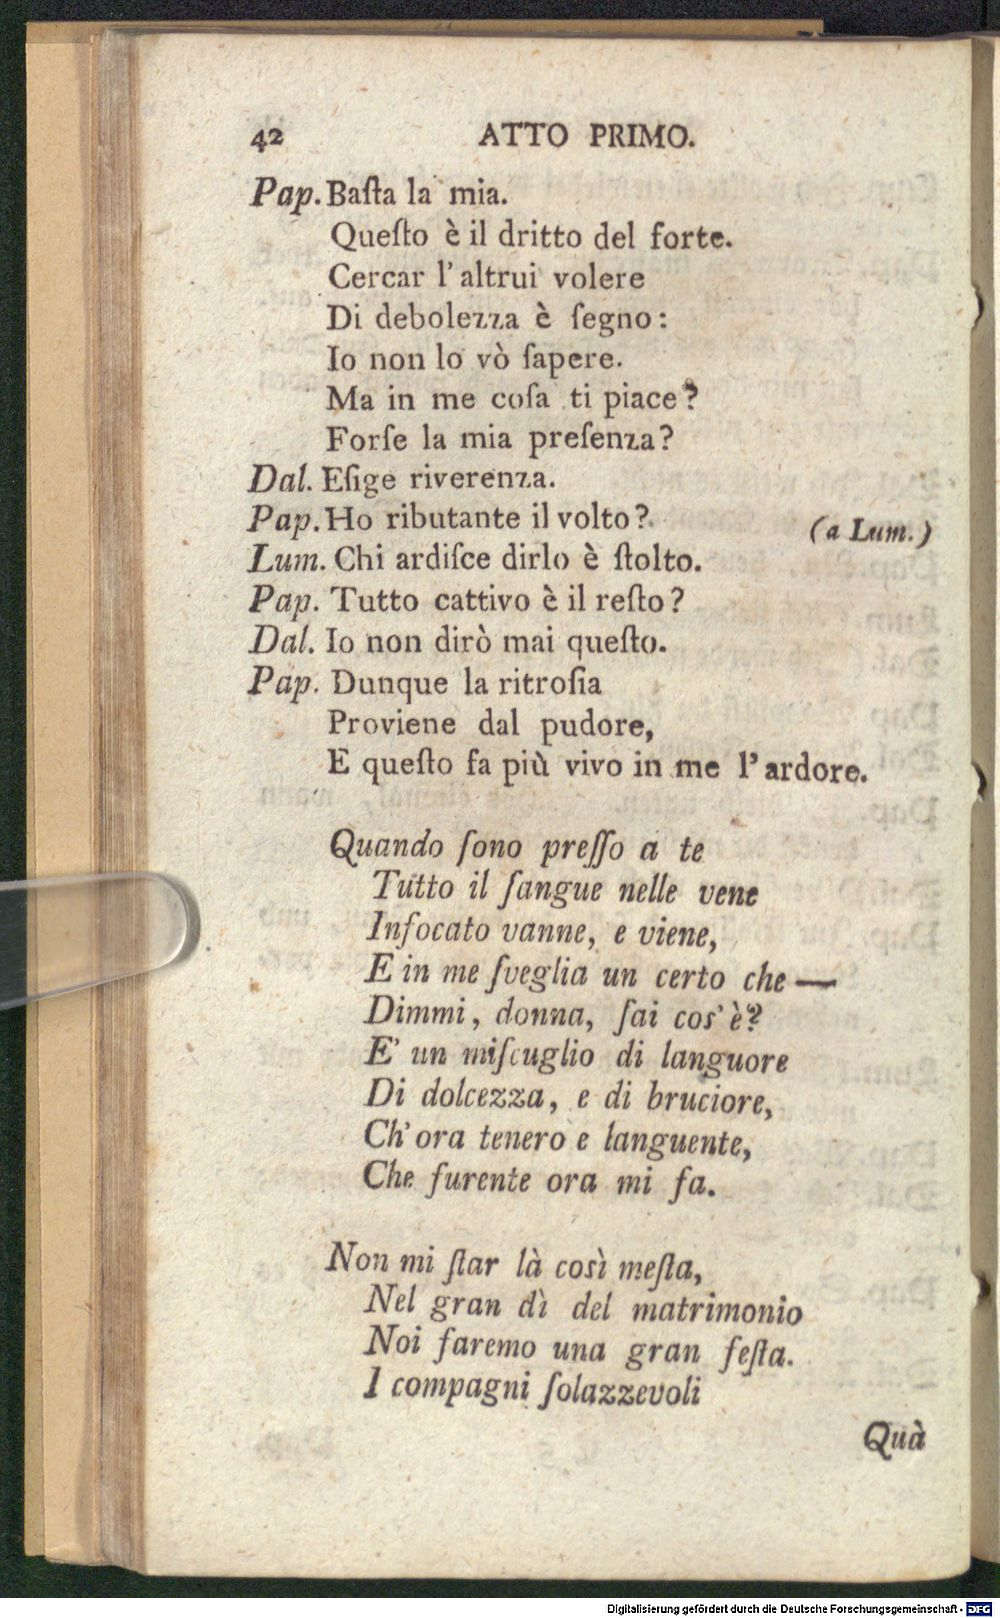 42 ATTO PRIMO.
Pap. Baſta la mia.
Queſto è il dritto del forte.
Cercar l' altrui volere
Di debolezza è ſegno:
Io non lo vò ſapere.
Ma in me coſa ti piace?
Forſe la mia preſenza?
Dal. Eſige riverenza.
Pap. Ho ributante il volto? (a Lum.)
Lum. Chi ardiſce dirlo è ſtolto.
Pap. Tutto cattivo è il reſto?
Dal. Io non dirò mai queſto.
Pap. Dunque la ritroſia
Proviene dal pudore,
E queſto fa più vivo in me l' ardore.
Quando ſono preſſo a te
Tutto il ſangue nelle vene
Infocato vanne, e viene,
E in me ſveglia un certo che —
Dimmi, donna, ſai cos' è?
E' un miſcuglio di languore
Di dolcezza, e di bruciore,
Ch' ora tenero e languente,
Che furente ora mi fa.
Non mi ſtar là così meſta,
Nel gran dì del matrimonio
Noi faremo una gran feſta.
I compagni ſolazzevoli
Quà
Digitalisierung gefördert durch die Deutsche Forschungsgemeinschaft - DFG